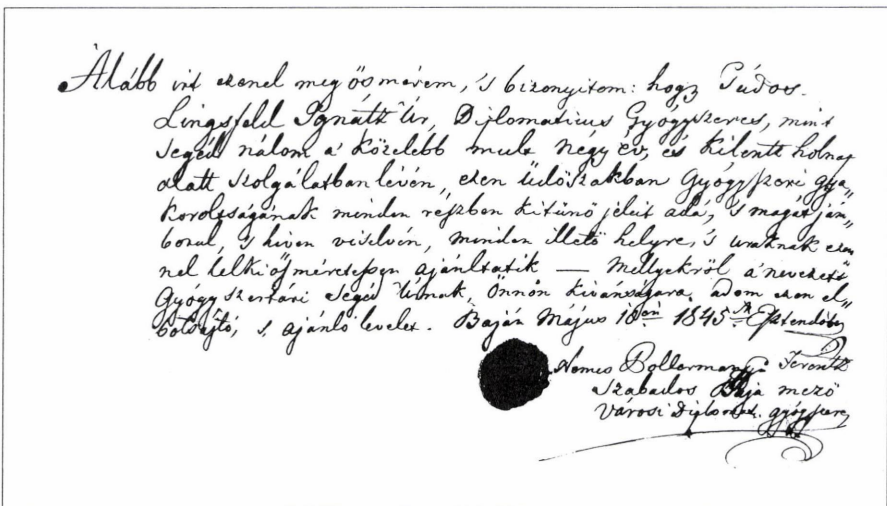 Alább irt ezenel meg ösmérem, 's bizonyitom: hogy Túdos.
Lingsfeld Ignátz Úr, Diplomaticus Gyógyszeres, mint
Segéd nálom a' közelebb mult Négy év, és Kilentz holnap
alatt szolgálatban lévén, ezen üdöszakban Gyógyszeri gya„
korolságának minden részben kitünö jeleit adá, 's magát jám„
borul, 's hiven viselvén, minden illető helyre, 's uraknak ezen„
nel lelki ösméretessen ajánltatik — Mellyekröl a' nevezett
Gyógyszertári Segéd Úrnak, Önnön kivánságara, adom ezen el„
botsájtó, s. ajánló levelet. Baján Május 18án 1845 Esztendőben
Nemes Ferentz
Szabados Baja mező
Városi Diplomat. gyógyszeres